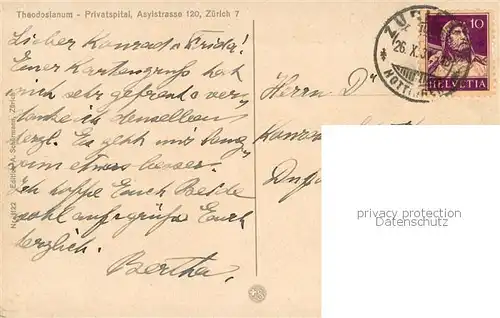 Theodosianum - Privatspital, Asylstrasse 120, Zürich 7
Lieber Konrad u Frida!
Euer Kartengruss hat
mich sehr gefreut u ver-
danke ich denselben
herzl. Es geht mir lang-
sam etwas besser.
Ich hoffe Euch Beide
wohl auf u grüsse Euch
herzlich.
Bertha.
Herrn Dr
Konrad
26.X.3
10
HELVETIA
property protection
Datenschutz